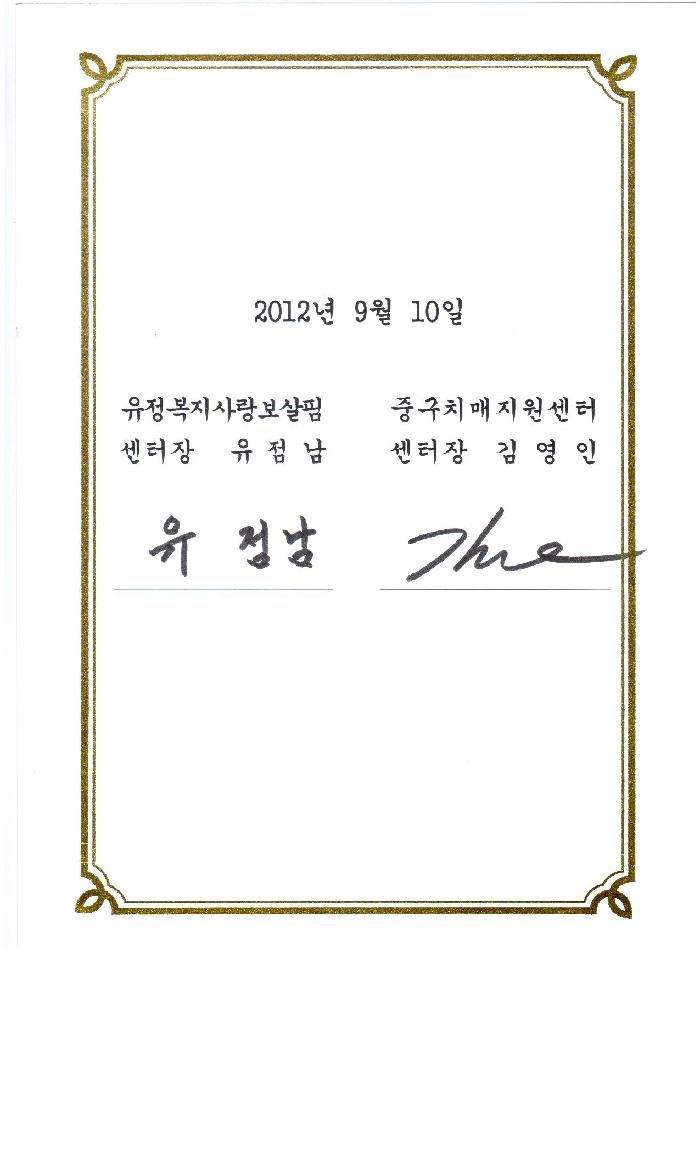 2012년 9월 10일
유정복지사랑보살핌
센터장 유 점 남
중구치매지원센터
센터장 김 영 인
유 점남